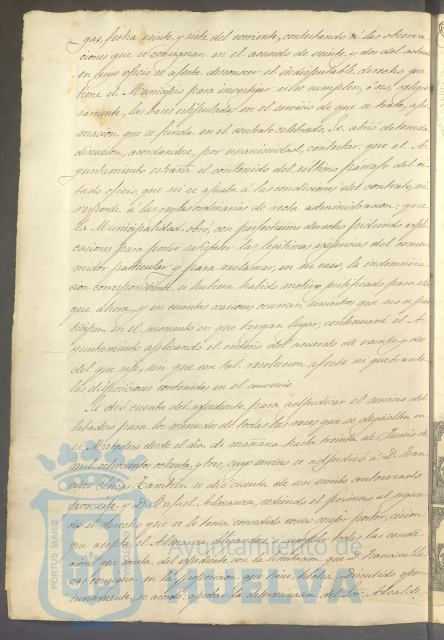 gas, fecha veinte y siete del corriente, contestando á las observa-
ciones que se consignan en el acuerdo de veinte y dos del actual
en cuyo oficio se afecta desconocer el indisputable derecho que
tiene el Municipio para investigar si se cumplen, ó no, religio-
samente, las bases estipuladas en el servicio de que se trata, afir-
macion que se funda en el contrato celebrado. Se abrió detenida
discusion, acordandose, por unanimidad, contestar: que el A-
yuntamiento estraña el contenido del último parrafo del ci-
tado oficio, que ni se ajusta á las condiciones del contrato, ni
responde á las reglas ordinarias de recta administracion: que
la Municipalidad obró con perfectisimo derecho pidiendo espli-
caciones para poder satisfacer las legítimas exijencias del consu-
midor particular y para reclamar, en su caso, la indemniza-
cion correspondiente si hubiera habido motivo justificado para ello
que ahora, y en cuantas ocasiones ocurran
en el momento en que tengan lugar, continuará el A-
yuntamiento aplicando el criterio del acuerdo de veinte y dos
del que rije, sin que con tal resolucion afecte ni quebrante
las disposiciones contenidas en el convenio
Se dió cuenta del espediente para adjudicar el servicio del
para los de todas las reses que se degüellen en
el Matadero desde el dia de mañana hasta treinta de Junio de
mil ochocientos ochenta y tres, cuyo servicio se adjudicó á D. Fran-
cisco. Tambien se dió cuenta de un escrito autorizado
por éste y D. Rafael Almansa, cediendo el primero al segun-
do el derecho que se le tenia concedido como mejor postor, cesion
que acepta el Almansa obligandose á cumplir todas las condi-
ciones que consta del espediente con la limitacion que D. Francisco
consigna en la proposicion que tiene hecha. Discutido opor-
tunamente, se acordó: aprobar la determinacion del Sor. Alcalde,
PORTUS MARIS
Ayuntamiento de
HUELVA